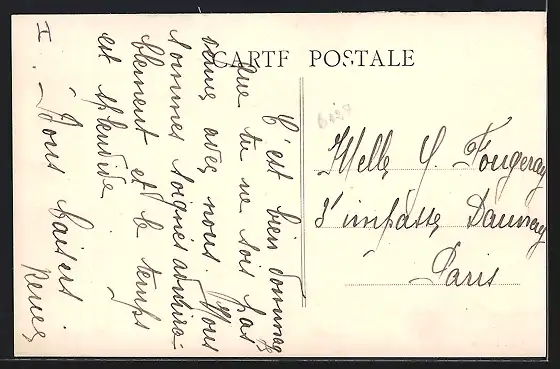 CARTE POSTALE
I
C'est bien dommage
que tu ne sois pas
venue avec nous. Nous
sommes soignés admira-
blement et le temps
est splendide.
Bons baisers
Renée
Melle Y. Fougeray
3 impasse Daunay
Paris